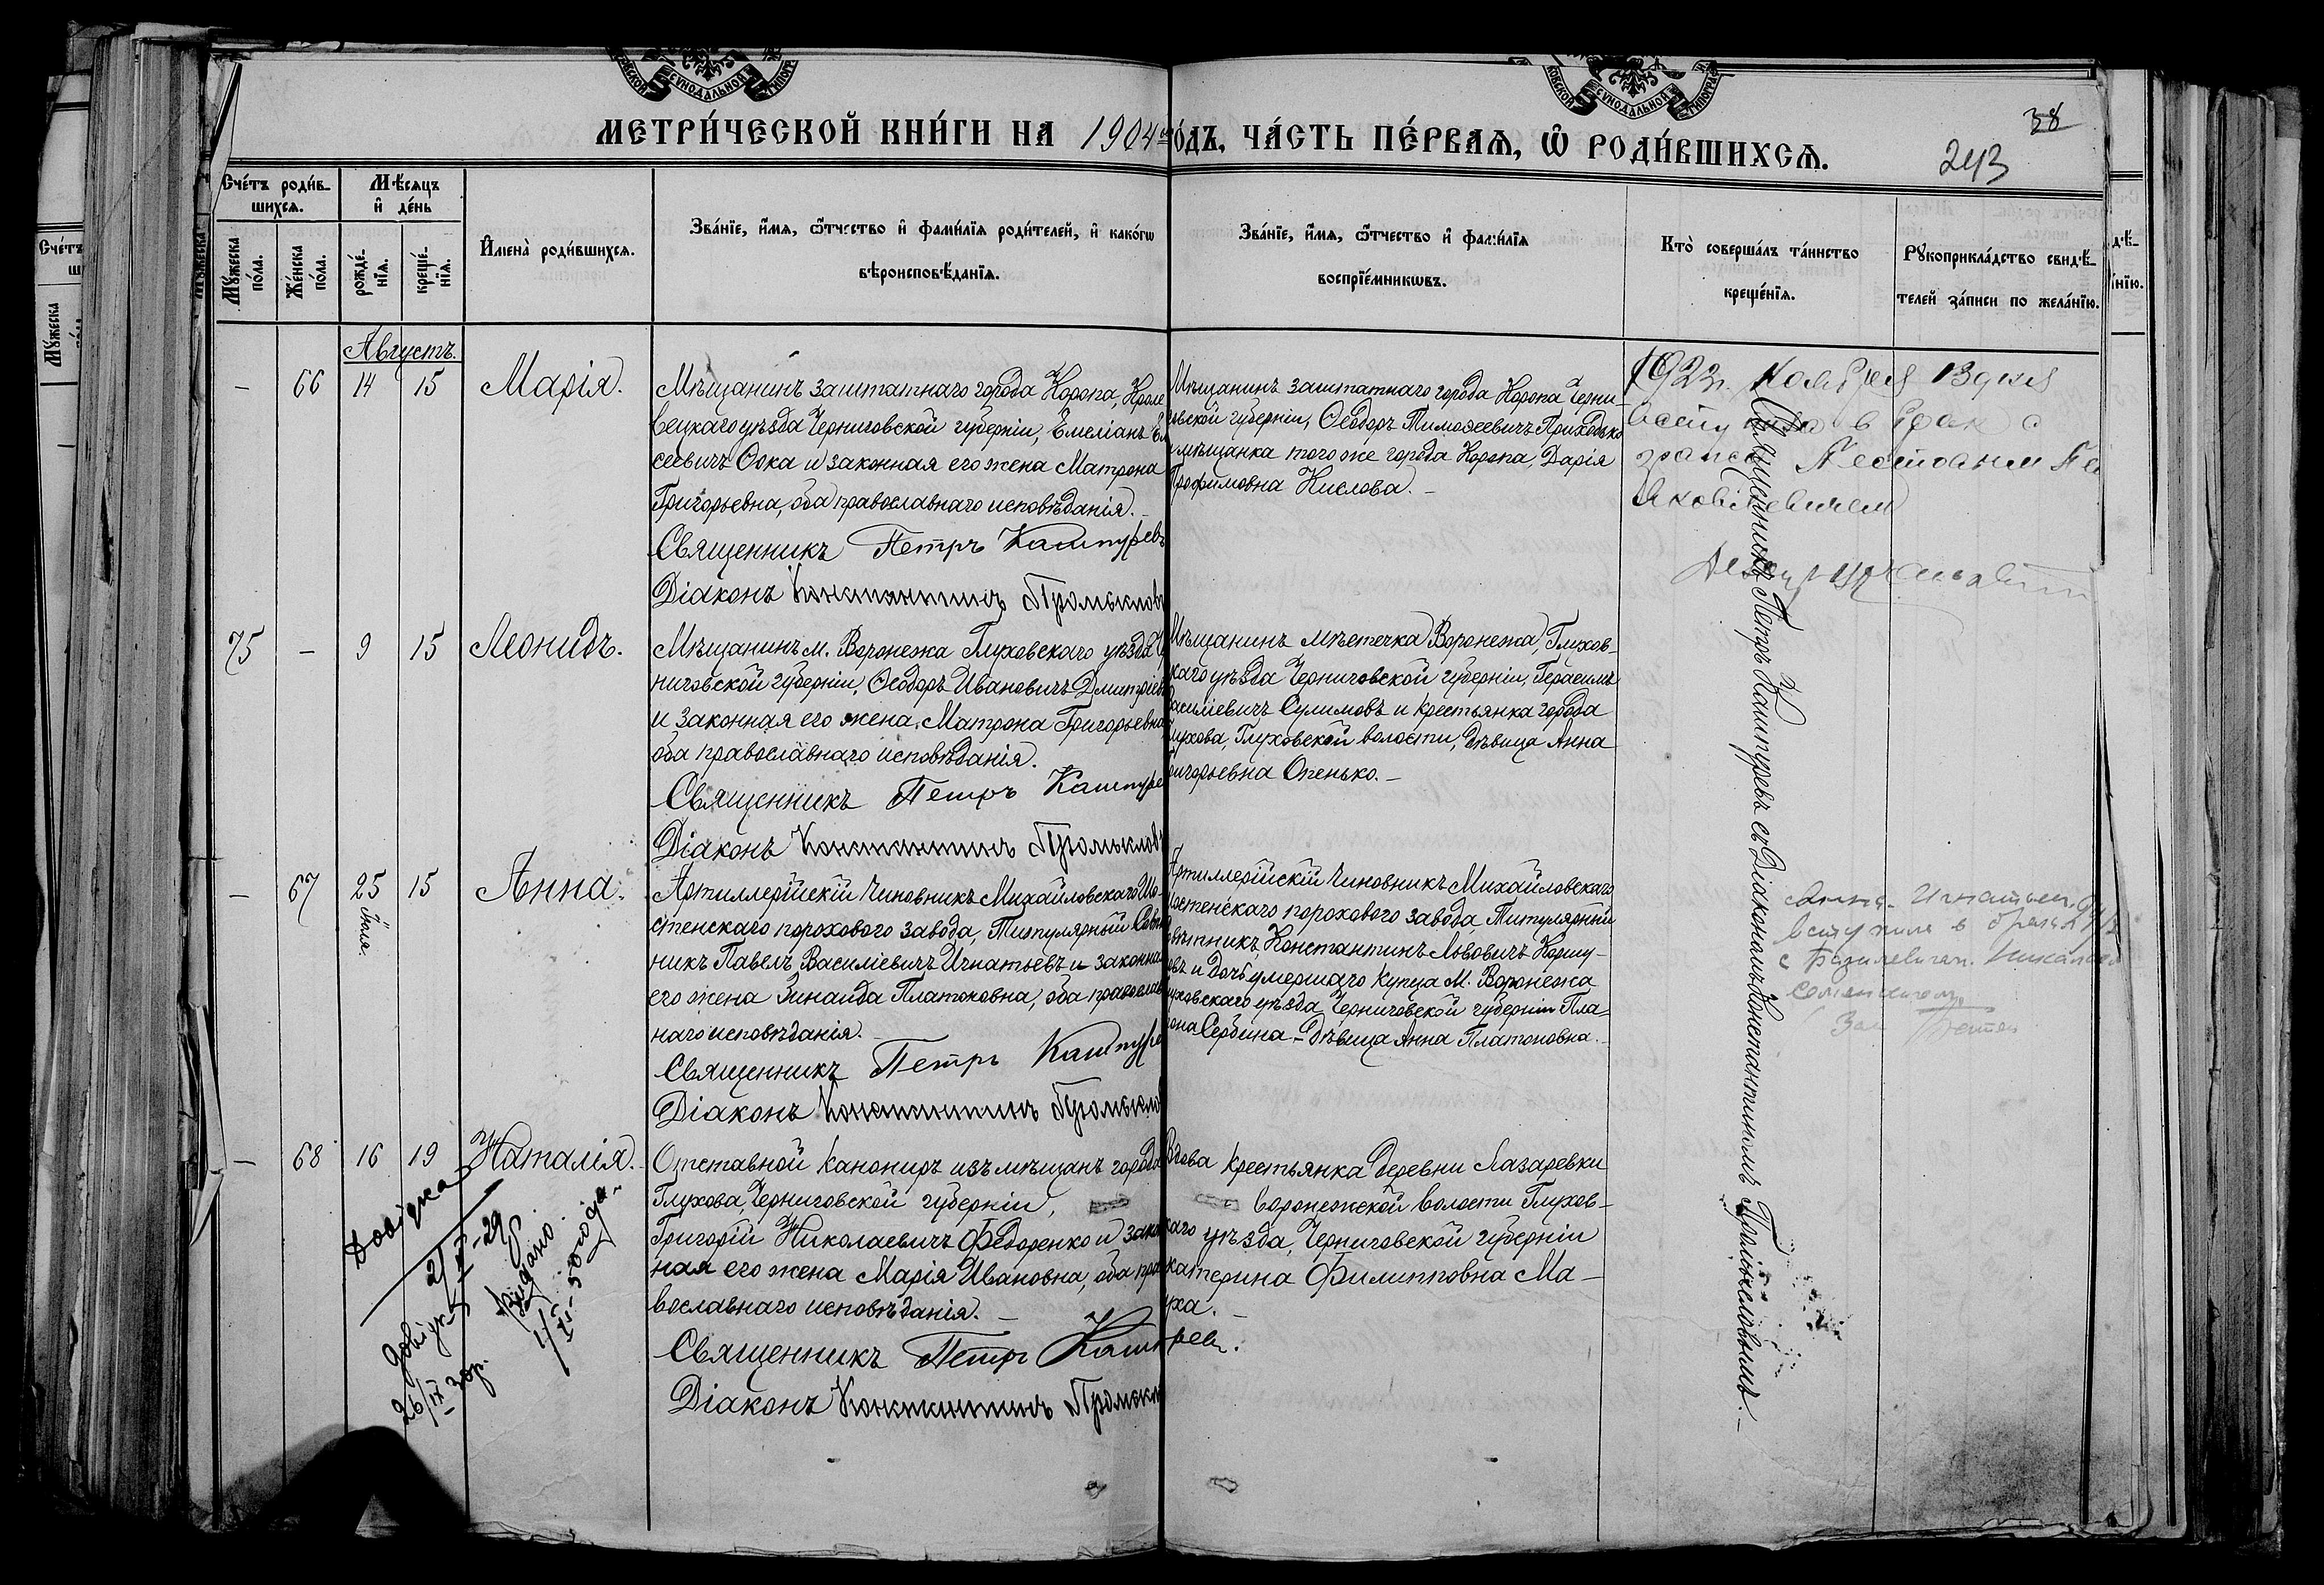 МЕТРИ́ЧЕСКОЙ КНИ́ГИ НА 1904 го́дъ, ЧА́СТЬ ПЕ́РВАѦ, Ѽ РОДИ́ВШИХСѦ.
38
243
Сче́тъ роди́в-
шихсѧ.
Мѣ́сѧцъ
и҆ де́нь
Мꙋ́жеска
по́ла.
Же́нска
по́ла.
рожде́-
нїѧ.
креще́-
нїѧ.
И҆мена̀ роди́вшихсѧ.
Зва́нїе, и҆́мѧ, ѻ҆́тчество и҆ фами́лїѧ роди́телей, и҆ како́гѡ
вѣроисповѣ́данїѧ.
Зва́нїе, и҆́мѧ, ѻ҆́тчество и҆ фами́лїѧ
воспрїе́мникѡвъ.
Кто̀ соверша́лъ та́инство
креще́нїѧ.
Рꙋкоприкла́дство свидѣ́-
телей за́писи по жела́нїю.
Августъ.
— 66 14 15 Марія.
Мѣщанинъ заштатнаго города Коропа, Кроле
вецкаго уѣзда Черниговской губерніи, Емеліанъ Ел
сеевичъ Оока и законная его жена Матрона
Григорьевна, оба православнаго исповѣданія.
Священникъ Петръ Кашпуревъ
Діаконъ Константинъ Промысловъ
Мѣщанинъ заштатнаго города Коропа Черни-
говской губерніи, Ѳеодоръ Тимоѳеевичъ Приходько
и мѣщанка того же города Коропа, Дарія
Трофимовна Кислова. —
1922 г.
в брак с
75 — 9 15 Леонидъ.
Мѣщанинъ м. Воронежа Глуховскаго уѣзда Чер
ниговской губерніи, Ѳеодоръ Ивановичъ Дмитріев
и законная его жена Матрона Григорьевна
оба православнаго исповѣданія.
Священникъ Петръ Кашпуре
Діаконъ Константинъ Промыслов
Мѣщанинъ мѣстечка Воронежа, Глухов-
скаго уѣзда Черниговской губерніи, Герасимъ
Василіевичъ Сулимовъ и крестьянка города
Глухова, Глуховской волости, дѣвица Анна
Григорьевна Опенько. —
— 67 25 Іюля. 15 Анна.
Артиллерійскій Чиновникъ Михайловскаго Шо-
стенскаго порохового завода, Титулярный Совѣт
никъ Павелъ Василіевичъ Игнатьевъ и законна
его жена Зинаида Платоновна, оба православ
наго исповѣданія. —
Священникъ Петръ Кашпуре
Діаконъ Константинъ Промыслов
Артиллерійскій Чиновникъ Михайловскаго
Шостенскаго порохового завода Титулярный
Совѣтникъ, Константинъ Львовичъ Коршу-
новъ и дочь умершаго купца м. Воронежа
Глуховскаго уѣзда Черниговской губерніи Пла-
тона Сербина — дѣвица Анна Платоновна. —
вступила в брак
с
— 68 16 19 Наталія.
Отставной канониръ изъ мѣщанъ города
Глухова, Черниговской губерніи,
Григорій Николаевичъ Федоренко и закон
ная его жена Марія Ивановна, оба пра
вославнаго исповѣданія. —
Священникъ Петръ Кашпуревъ.
Діаконъ Константинъ Промысл
Вдова крестьянка деревни Лазаревки
Воронежской волости Глухов-
скаго уѣзда, Черниговской губерніи
Екатерина Филипповна Ма-
уха. —
Довідка
29
довідк
26/IX 30р.
Видано
Священникъ Петръ Кашпуревъ съ Діакономъ Константиномъ Промысловымъ. —